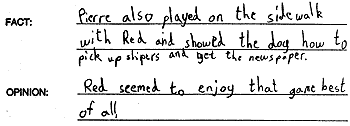 FACT: Pierre also played on the sidewalk
with Red and showed the dog how to
pick up slipers and get the newspaper.
OPINION: Red seemed to enjoy that game best
of all